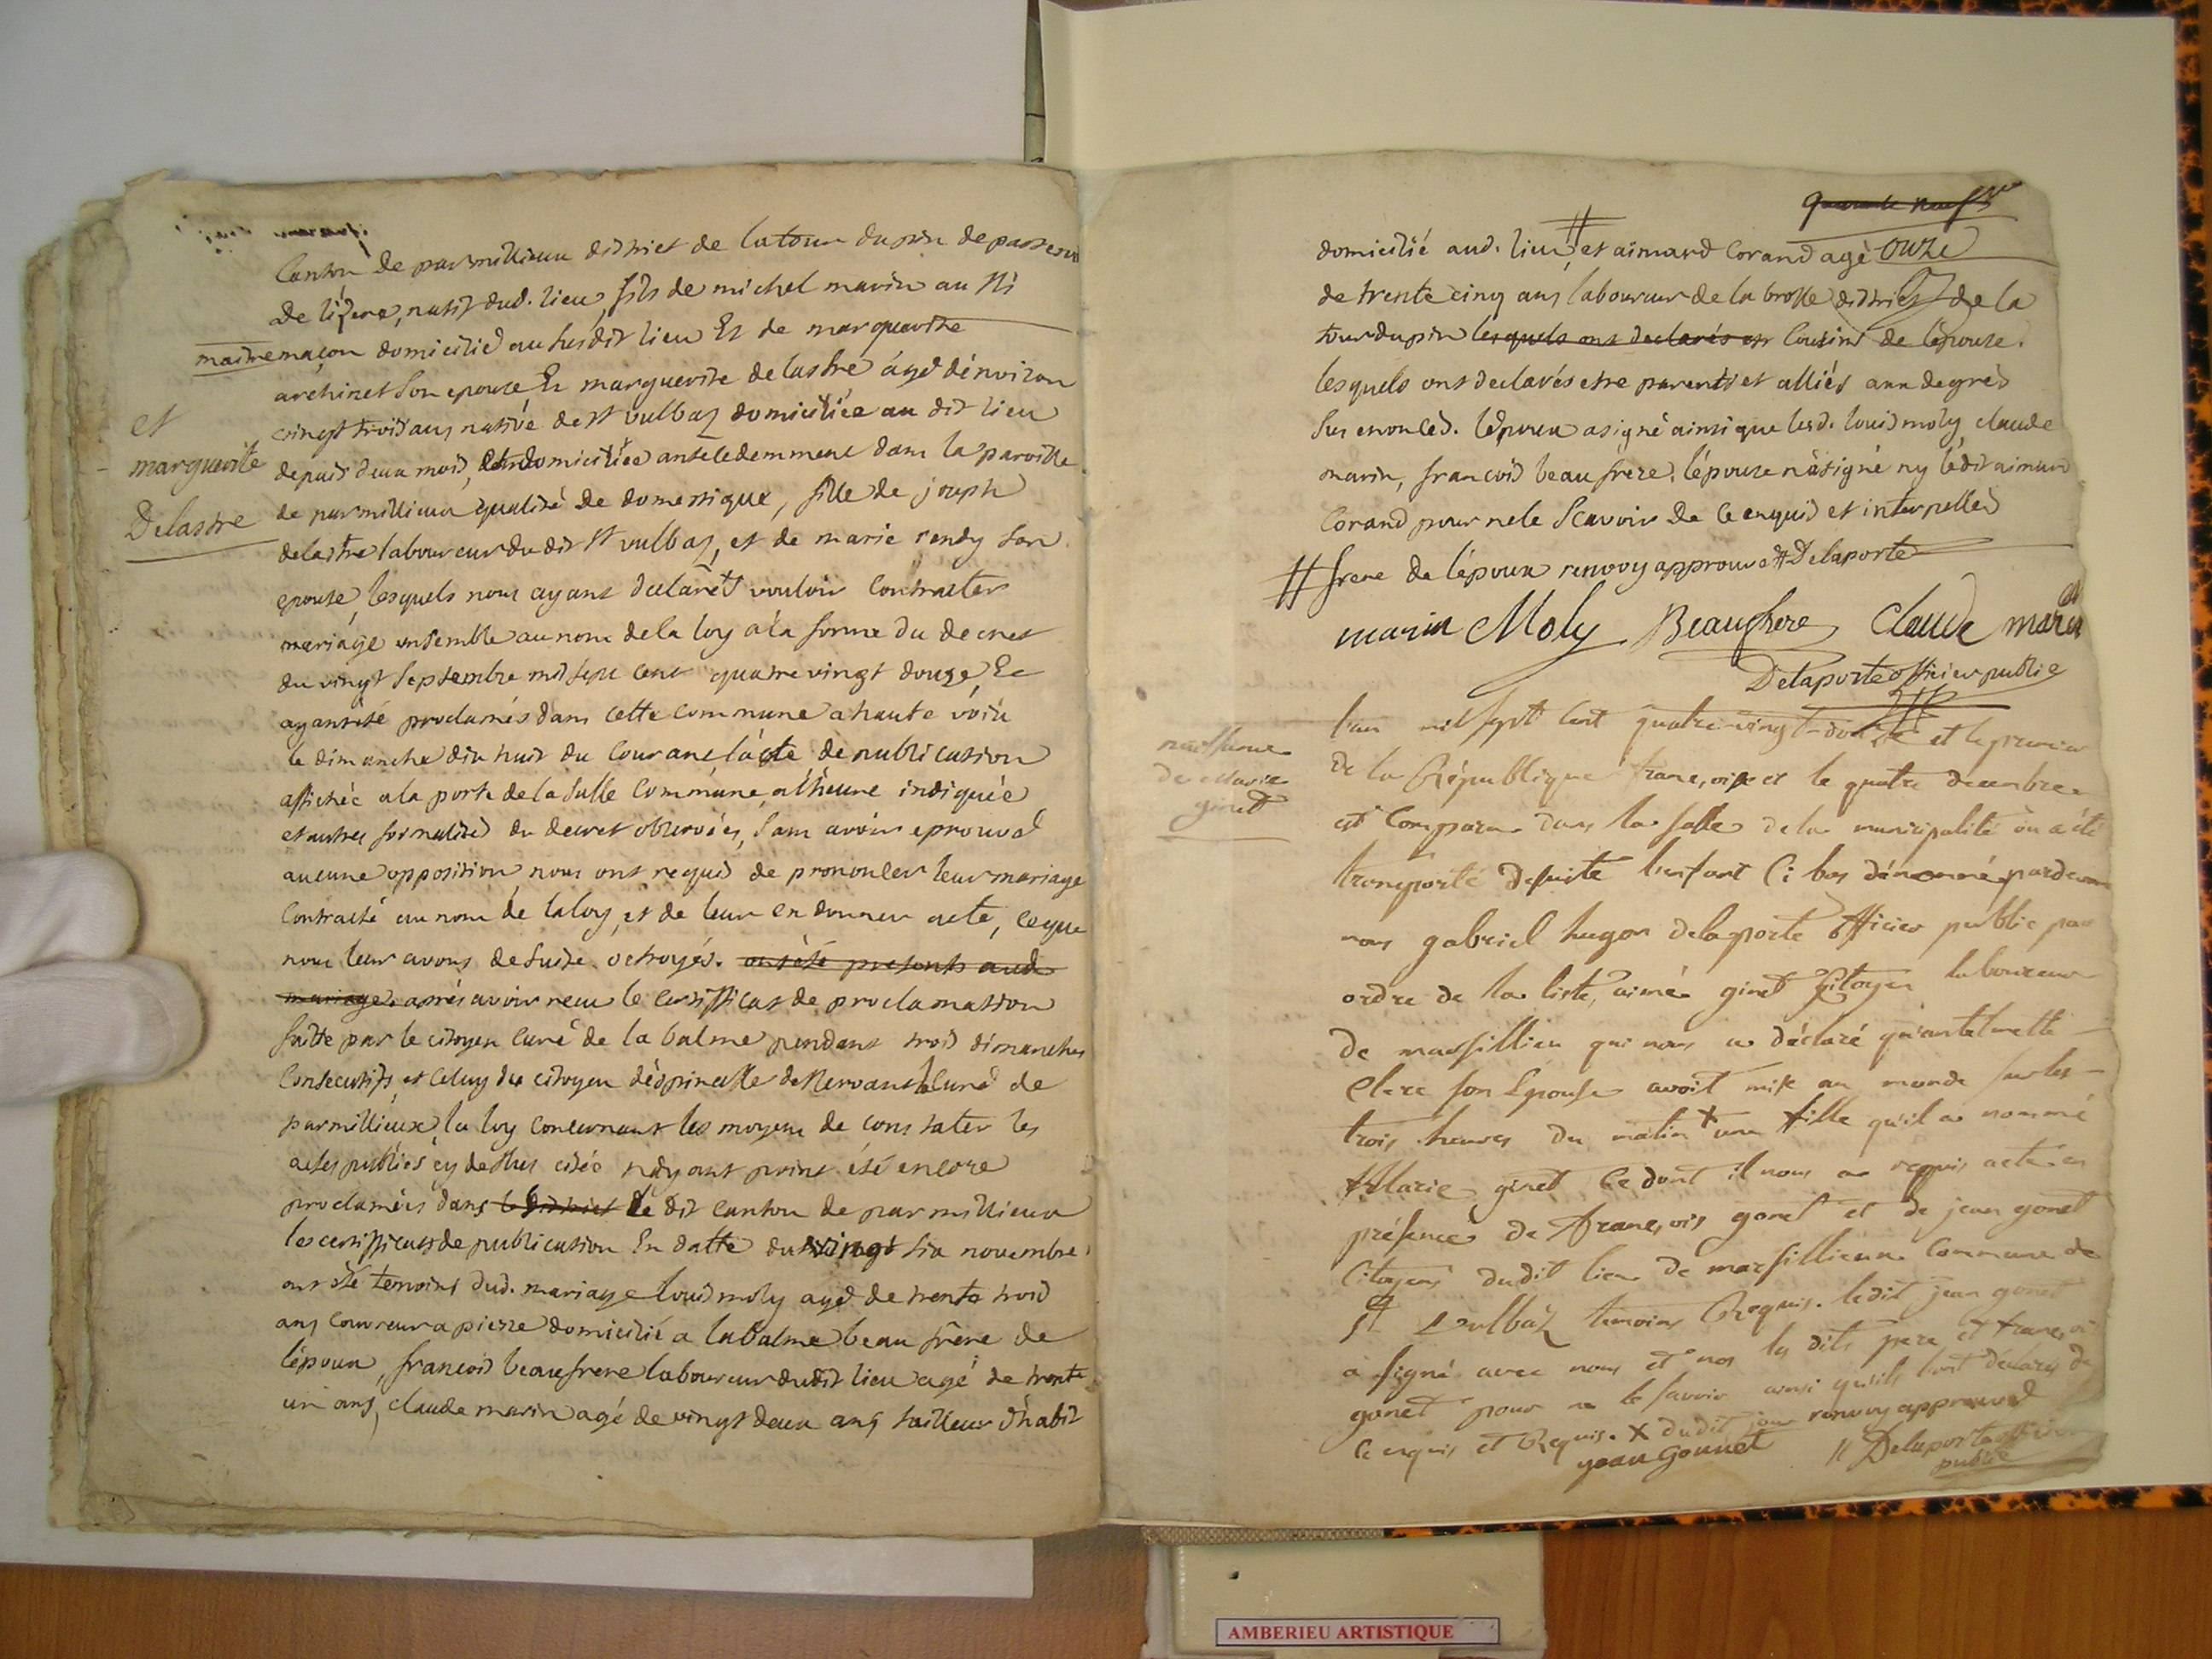 Canton de parmillieu district de latour dupin de partem
de lizere, natif dud. lieu, fils de michel marin aussi
maitre maçon domicilié au susdit lieu Et de marguerite
archinet son epouse, Et marguerite delastre agéé dénviron
vingt trois ans nativé de St vulbaz domiciliée au dit lieu
et
marguerite
Delastre
depuis deux mois, domiciliée antecedemment dans la paroisse
de parmillieux qualité de domestique, fille de joseph
delastre laboureur du dit St vulbaz, et de marie rendy son
epouse, lesquels nous ayant declarés vouloir contracter
mariage ensemble au nom de la loy a la forme du decret
du vingt septembre mil sept cent quatre vingt douze, Et
ayant été proclamés dans cette commune a haute voix
le dimanche dix huit du courant, lácte de publication
affichée a la porte de la salle commune, a l'heure indiquée
et autres formalités du decret observées, sans avoir eprouvé
aucune opposition nous ont requis de prononcer leur mariage
contracté au nom de la loy, et de leur en donner acte, ce que
nous leur avons de suite octroyés. ont été presents aud.
mariage. aprés avoir recu le certifficat de proclamation
faitte par le citoyen curé de la balme pendant trois dimanches
consecutifs, et celuy du citoyen déspinasse de curé de
parmillieux, la loy concernant les moyens de constater les
actes publics cy dessus citée náyant point été encore
proclamées dans le district le dit canton de parmillieux
les certifficats de publication En datte du vingt six novembre,
ont été temoins dud. mariage louis moly agé de trente trois
ans couvreur a pierre domicilié a la balme beau frère de
lépoux, françois beaufrere laboureur dudit lieu agé de trente
un ans, claude marin agé de vingt deux ans tailleur d'habit
quarante neuf
onze
domicilié aud. lieu, # et aimard corand agé
de trente cinq ans laboureur de la brosse district de la
tour dupin lesquels ont declarés etr cousins de lépouse.
lesquels ont declarés etre parents et alliés aux degrés
sus enoncés. lépoux a signé ainsi que lesd. louis moly, claude
marin, françois beaufrere. lépouse n'a signé ny ledit aimard
corand pour ne le scavoir de ce enquis et interpellés
# frere de lépoux renvoy approuvé # Delaporte
marin Moly Beaufrere Claude marin
Delaporte officier public
naissance
de Marie
ginet
lan mil sept cent quatre vingt douze et le premier
de la République françoise et le quatre décembre
est comparu dans la salle de la municipalité où a été
transporté desuite lenfant ci bas dénommé pardevant
nous gabriel hugon delaporte officier public par
ordre de la liste, aimé ginet citoyen laboureur
de marsillieu qui nous a déclaré qu'antelmette
clerc son Epouse avoit mise au monde sur les
trois heures du matin x une fille qu'il a nommé
Marie ginet ce dont il nous a requis acte en
présence de françois gonet et de jean gonet
citoyens dudit lieu de marsillieux commune de
St Vulbaz temoins Requis. ledit jean gonet
a signé avec nous et non les dits pere et françois
gonet pour ne le savoir ainsi qu'ils l'ont déclaré de
ce enquis et Requis. x dudit jour renvoy approuvé
jean gonnet
# Delaporte officier
public
AMBERIEU ARTISTIQUE